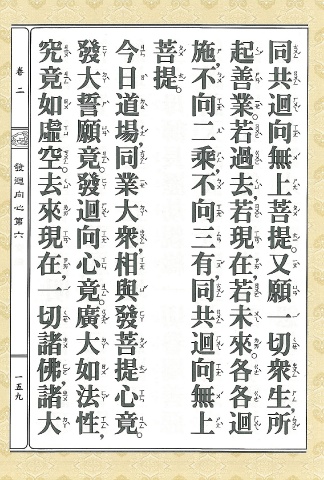 同共迴向無上菩提。又願一切衆生所
起善業。若過去，若現在若未來。各各迴
施，不向二乘，不向三有，同共迴向無上
菩提。
今日道場，同業大衆，相與發菩提心竟。
發大誓願竟。發迴向心竟。廣大如法性，
究竟如虛空。去來現在，一切諸佛，諸大
卷二
發迴向心第六
一五九